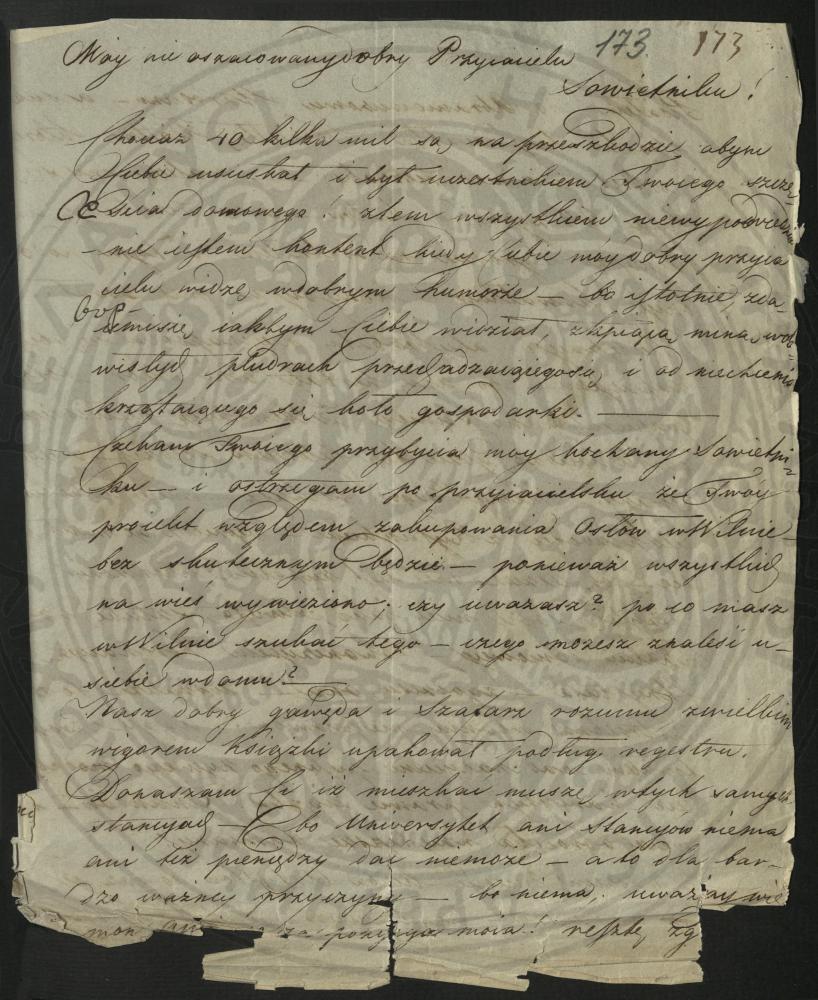 173. 173
Móy nie oszacowany dobry Przyiacielu
Sowietniku!
Chociaż 40 kilka mil są na przeszkodzie abym
Ciebie usciskał i był uczestnikiem Twoiego szczę
ścia domowego! ztem wszystkiem niewypowiedzia
-nie iestem kontent kiedy Ciebie móy dobry przyia
cielu widzę wdobrym humorze — bo istotnie zda-
iemisię iakbym Ciebie widział, zkpiącą miną, wob-
wisłych pludrach przechadzaiącegosię i od niechcenia
krzątaiącego się koło gospodarki. —
Czekam Twoiego przybycia móy kochany Sowietni=
ku — i ostrzegam po przyiacielsku że Twóy
proiekt względem zakupowania Osłów wWilnie
bez skutecznym będzie — ponieważ wszystkich
na wieś wywieziono; czy uważasz? po co masz
wWilnie szukać tego — czego możesz znaleść u-
siebie wdomu? —
Nasz dobry gawęda i Szafarz rozumu zwielkim
wigorem Książki upakował podług regestru.
Donaszam Ci iż mieszkać muszę wtych samych
stancyach — bo Uniwersytet ani Stancyów niema
ani też pieniędzy dać niemoże — a to dla bar-
dzo ważney przyczyny — bo niema, uważay wię
moia! resztę